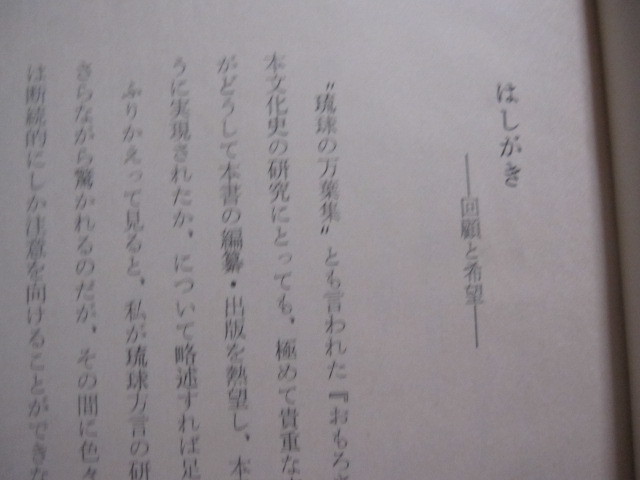 はしがき
——回顧と希望——
〝琉球の万葉集〟とも言われた『おもろさ
本文化史の研究にとっても、極めて貴重な
がどうして本書の編纂・出版を熱望し、本
うに実現されたか、について略述すれば足
ふりかえって見ると、私が琉球方言の研
さらながら驚かれるのだが、その間に色々
は断続的にしか注意を向けることができな